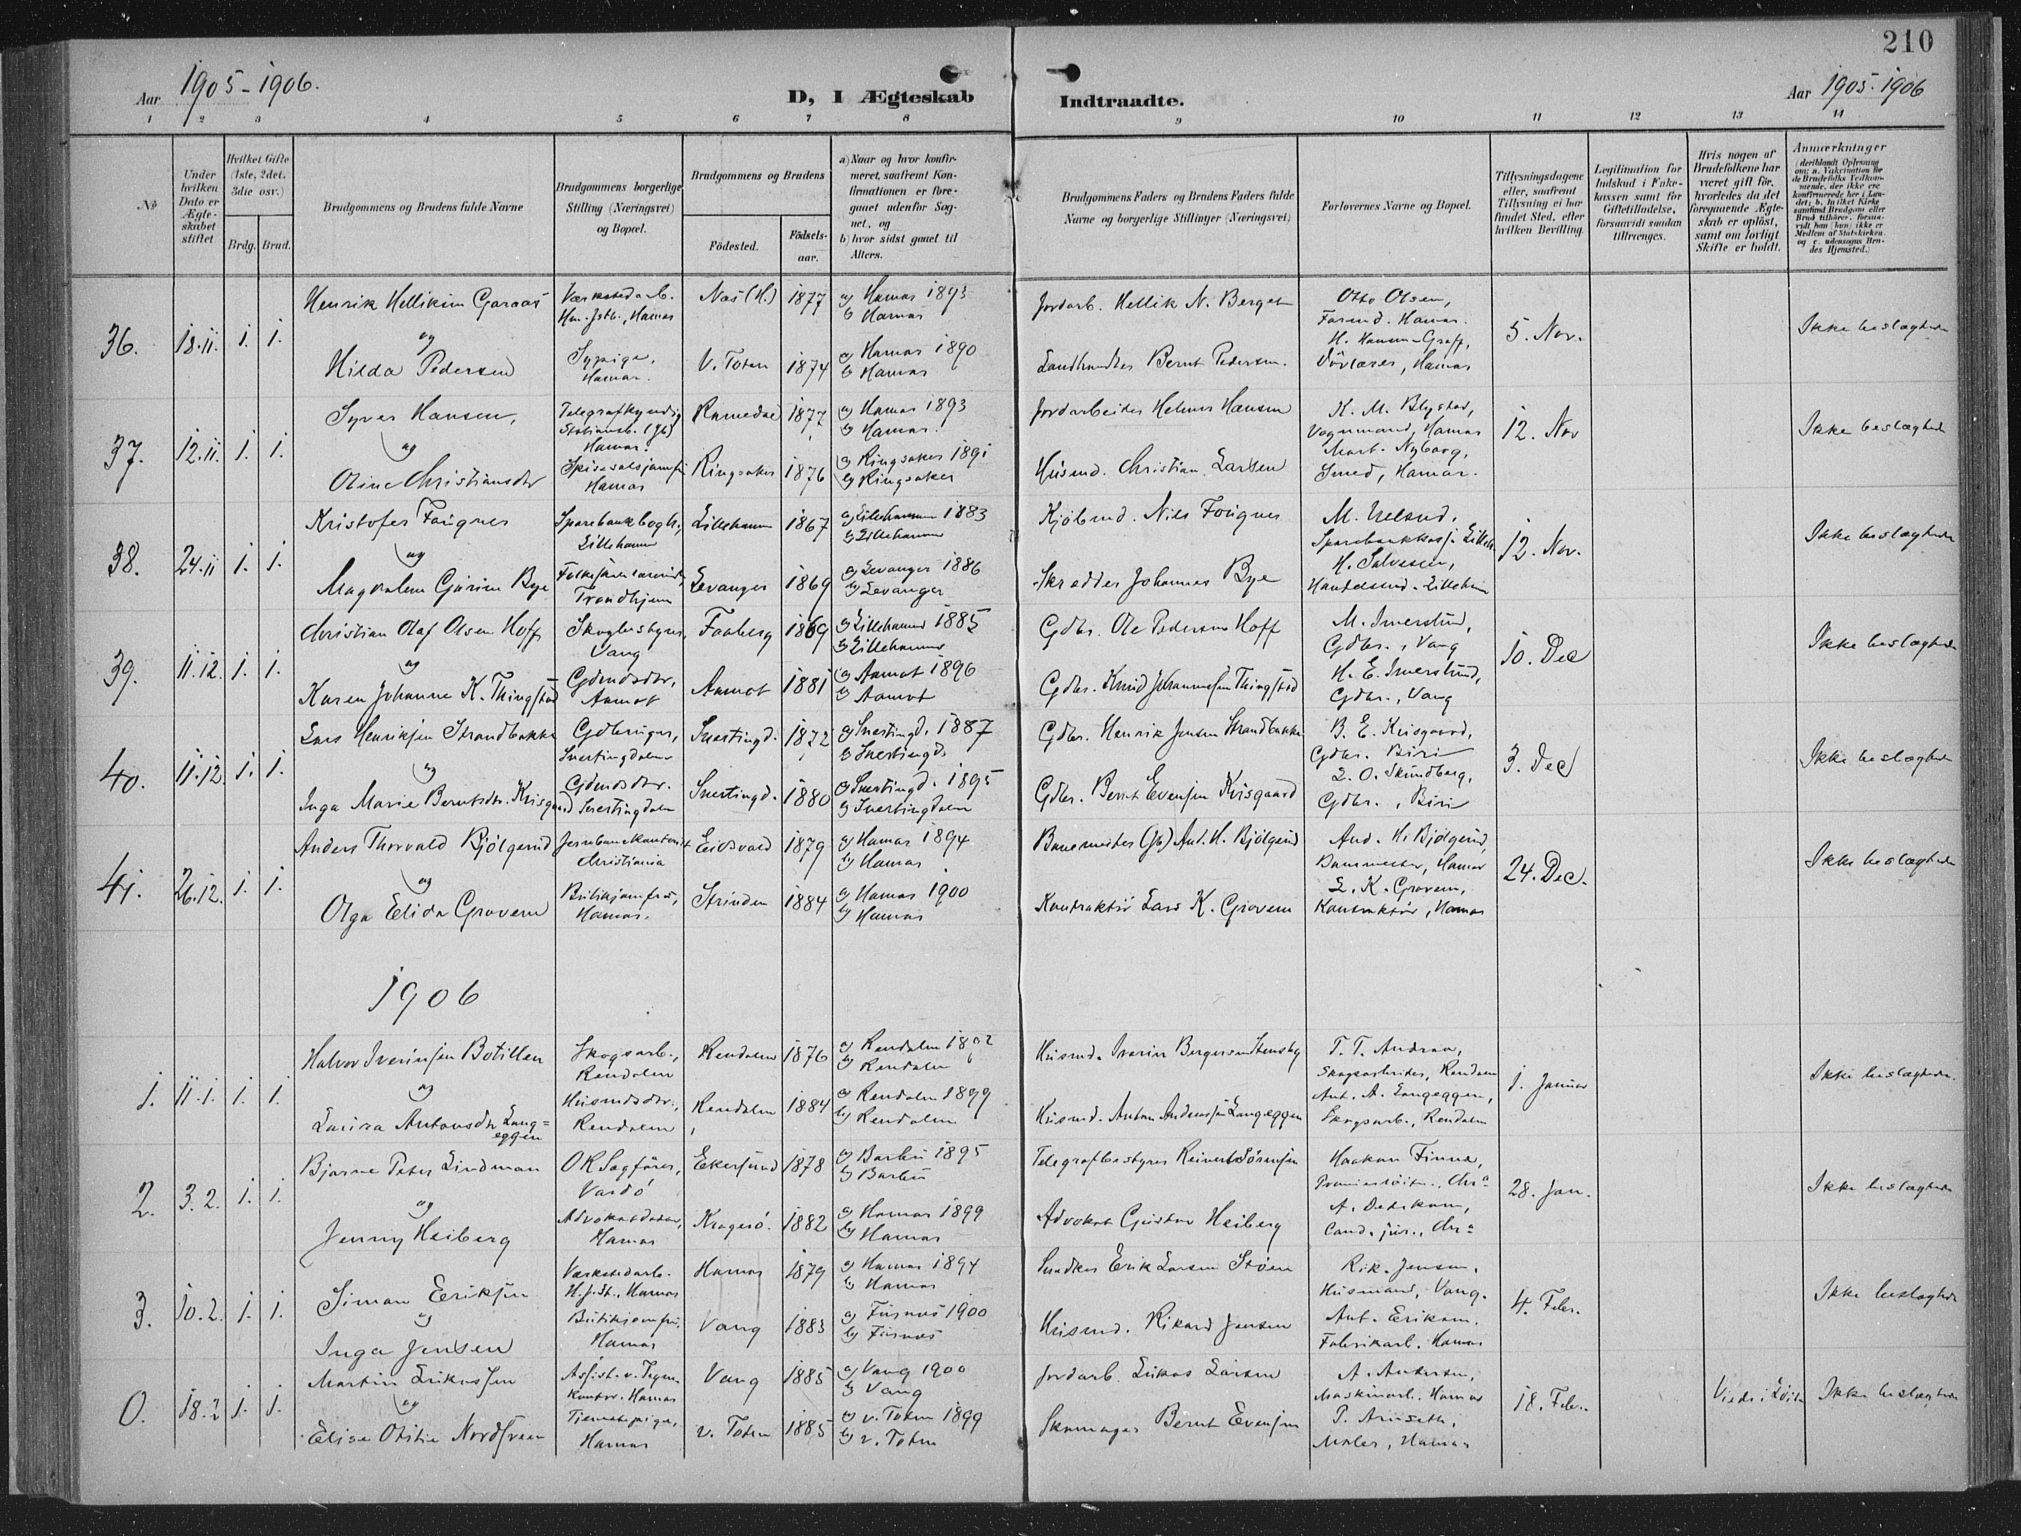 210
Aar 1905-1906.
D, I Ægteskab
Indtraadte.
Aar 1905-1906
1 2 3 4 5 6 7 8 9 10 11 12 13 14
№
Under hvilken Dato er Ægteskabet stiftet
Hvilket Gifte (1ste, 2det, 3die osv.)
Brdg. Brud.
Brudgommens og Brudens fulde Navne
Brudgommens borgerlige Stilling (Næringsvei) og Bopæl.
Brudgommens og Brudens
Födested.
Födselsaar.
a) Naar og hvor konfirmeret, saafremt Konfirmationen er foregaaet udenfor Sognet, og
b) hvor sidst gaaet til Alters.
Brudgommens Faders og Brudens Faders fulde Navne og borgerlige Stillinger (Næringsvei)
Forlovernes Navne og Bopæl.
Tillysningsdagene eller, saafremt Tillysning ei har fundet Sted, efter hvilken Bevilling.
Legitimation for Indskud i Enkekassen samt for Giftetilladelse, forsaavidt saadan tiltrænges.
Hvis nogen af Brudefolkene har været gift för, hvorledes da det foregaaende Ægteskab er oplöst, samt om lovligt Skifte er holdt.
Anmærkninger
36. 18.11. 1. 1.
Henrik Hellikim Garaas
Værkstedarb. Ham. Jstb., Hamar
Nes (H.) 1877
a) Hamar 1893
b) Hamar
Jordarb. Hellik N. Berget
Otto Olsen,
Formd. Hamar.
5. Nov.
Ikke beslægtede
og
Hilda Pedersen
Sypige,
Hamar.
V. Toten 1874
a) Hamar 1890
b) Hamar
Landhandler Bernt Pedersen.
H. Hansen-Graff,
Døvlærer, Hamar
37. 12.11. 1. 1.
Syver Hansen,
Telegrafkyndig
Stationsb. (Jb)
Hamar.
Romedal 1877
a) Hamar 1893
b) Hamar.
Jordarbeider Helmer Hansen
K. M. Blystad,
Vognmand, Hamar
12. Nov
Ikke beslægtede
og
Oline Christiansdtr
Spisesalsjomfru
Hamar
Ringsaker 1876
a) Ringsaker 1891
b) Ringsaker
Husmd. Christian Larsen
Mart. Nyborg,
Smed, Hamar.
38. 24.11 1. 1.
Kristofer Fougner
Sparebankbogh.,
Lillehamer
Lillehammer 1867
a) Lillehammer 1883
b) Lillehamer
Kjøbmd. Nils Fougner
12. Nov.
Ikke beslægtede
og
Magdalene Gurine Bye
Folkeskolelærerinde
Trondhjem
Levanger 1869
a) Levanger 1886
b) Levanger
Skrædder Johannes Bye
H. Salvesen,
Handelsmd. Lilleham
39. 11.12. 1. 1.
Christian Olaf Olsen Hoff
Skogbestyrer,
Vang
Faaberg 1869
a) Lillehamer 1885
b) Lillehamer
Gdbr. Ole Pedersen Hoff
M. Imerslund,
Gdbr., Vang
10. Dec
Ikke beslægtede
og
Karen Johanne K. Thingstad
Gdmdsdtr,
Aamot
Aamot 1881
a) Aamot 1896
b) Aamot
Gdbr. Knud Johannesen Thingstad
H. E. Imerslund,
Gdbr., Vang
40. 11.12. 1. 1.
Lars Henriksen Strandbakke
Gdbruger,
Snertingdalen
Snertingd. 1872
a) Snertingd. 1887
b) Snertingd.
Gdbr. Henrik Jensen Strandbakke
B. E. Krisgaard,
Gdbr. Biri
3. Dec
Ikke beslægtede
og
Inga Marie Berntsdtr. Krisgaard
Gdmdsdtr.
Snertingdalen
Snertingd. 1880
a) Snertingd. 1895
b) Snertingdalen
Gdbr. Bernt Evensen Krisgaard
L. O. Skundberg,
Gdbr., Biri
41. 26.12. 1. 1.
Anders Thorvald Bjølgerud
Jernbanekontorist
Christiania
Eidsvold 1879
a) Hamar 1894
b) Hamar
Banemester (Jb) Ant. H. Bjølgerud
And. H. Bjølgerud,
Banemester, Hamar
24. Dec.
Ikke beslægtede
og
Olga Elida Grovem
Butikjomfru,
Hamar.
Strinden 1884
a) Hamar 1900
b) Hamar
Kontraktør Lars K. Grovem
L. K. Grovem,
Kontraktør, Hamar
1906
1. 11.1. 1. 1.
Halvor Iverinsen Botillen
Skogsarb.,
Rendalen
Rendalen 1876
a) Rendalen 1892
b) Rendalen
Husmd. Iverin Bergersen Stensby
T. T. Andraa,
Skogsarbeider, Rendalen
1. Januar
Ikke beslægtede.
og
Laura Antonsdtr Langeggen
Husmdsdtr.,
Rendalen
Rendalen 1884
a) Rendalen 1899
b) Rendalen
Husmd. Anton Andersen Langeggen
Ant. A. Langeggen,
Skogsarb., Rendalen
2. 3.2. 1. 1.
Bjarne Peter Lindman
OR Sagfører,
Vardö
Ekersund 1878
a) Barbu 1895
b) Barbu
Telegrafbestyrer Reinert Sørensen
Haakon Finne,
Premierløitn., Chra
28. Jan.
Ikke beslægtede
og
Jenny Heiberg
Advokatdatter,
Hamar
Kragerö. 1882
a) Hamar 1899
b) Hamar
Advokat Gustav Heiberg
Cand. jur., Chra
3. 10.2. 1. 1.
Simon Eriksen
Værkstedarb.
H. J. St., Hamar
Hamar 1879
a) Hamar 1894
b) Hamar
Snedker Erik Larsen Støen
Rik. Jensen,
Husmand, Vang.
4. Febr.
Ikke beslægtede
og
Inga Jensen
Butikjomfru,
Hamar
Vang 1883
a) Furnes 1900
b) Furnes
Husmd. Rikard Jensen
Ant. Eriksen.
Fabrikarb. Hamar
0. 18.2 1. 1.
Martin Lukassen
Assist. v. Ingen.
Kontor. Hamar
Vang 1885
a) Vang 1900
b) Vang
Jordarb. Lukas Larsen
A. Andersen,
Maskinarb. Hamar
18. Febr.
Ikke beslægtede
og
Elise Otilie Nordsveen
Tjenestepige,
Hamar
V. Toten 1885
a) V. Toten 1899
b) V. Toten
Skomager Bernt Evensen
Maler, Hamar